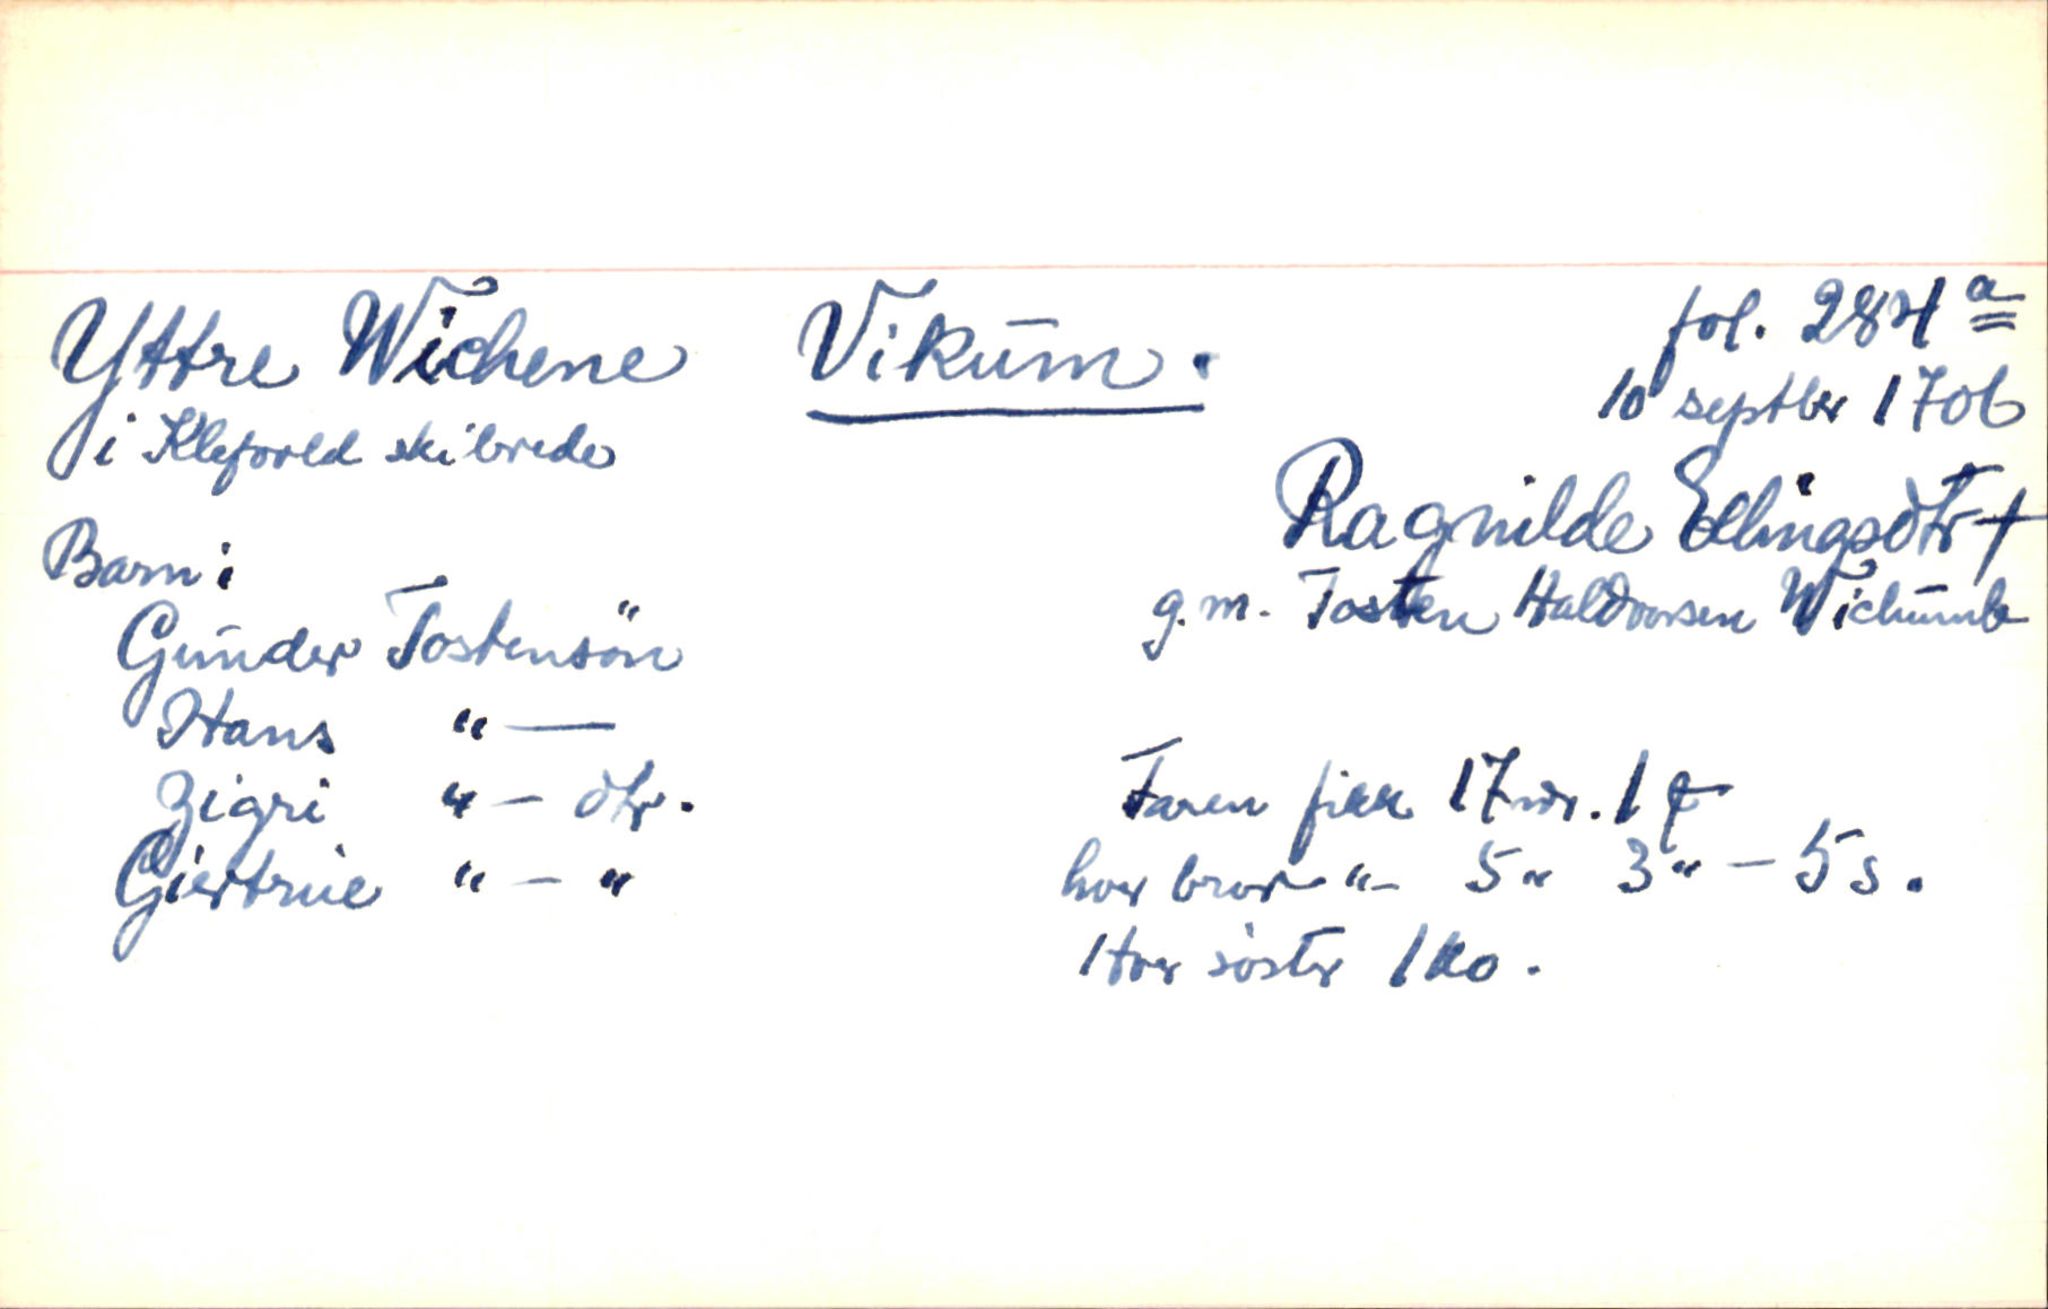 Yttre Wichene Vikum. fol. 284 a
i Kleforeld skibrede 10 septbr 1706
Ragnilde Ellingsdtr †
g.m. Tosten Haldvorsen Wichumb
Barn:
Gunder Tostensön
Hans " —
Zigri " — dtr.
Giertrue " — "
Faren fikk 17 mr. 1 q
hver bror " – 5 " 3 " – 5 s.
Hver søster 1 ko.